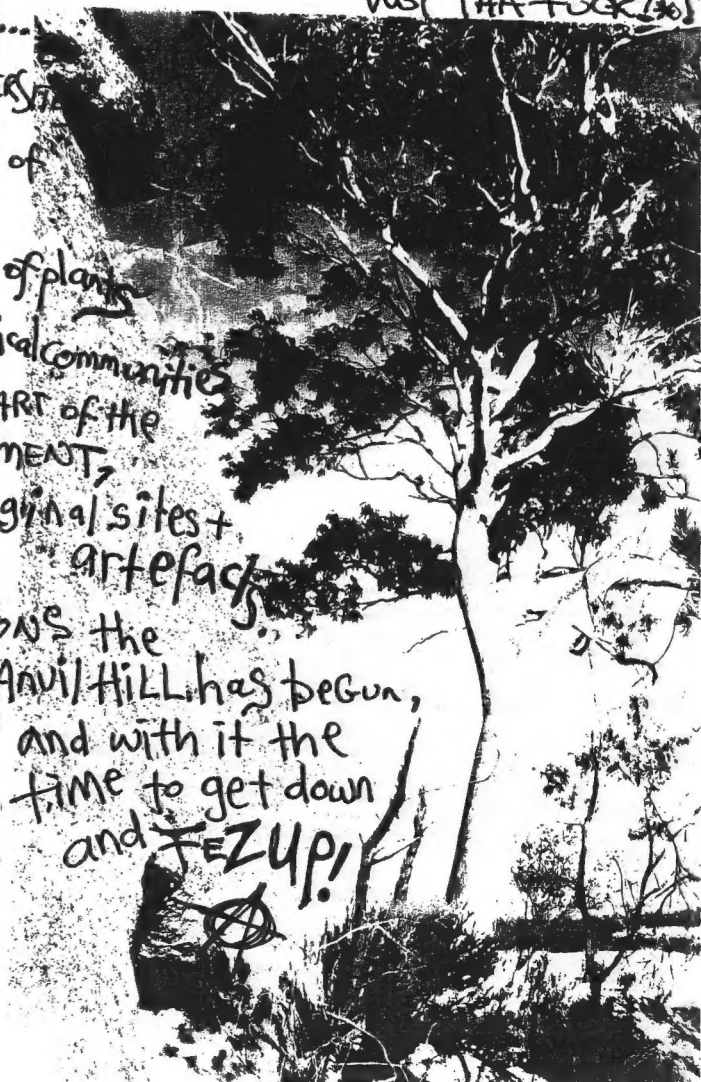 ...
of
of plants
ical communities
ART of the
MENT,
ginal sites +
artefacts.
ONS the
Anvil HiLL has beGun,
and with it the
time to get down
and FEZ UP!